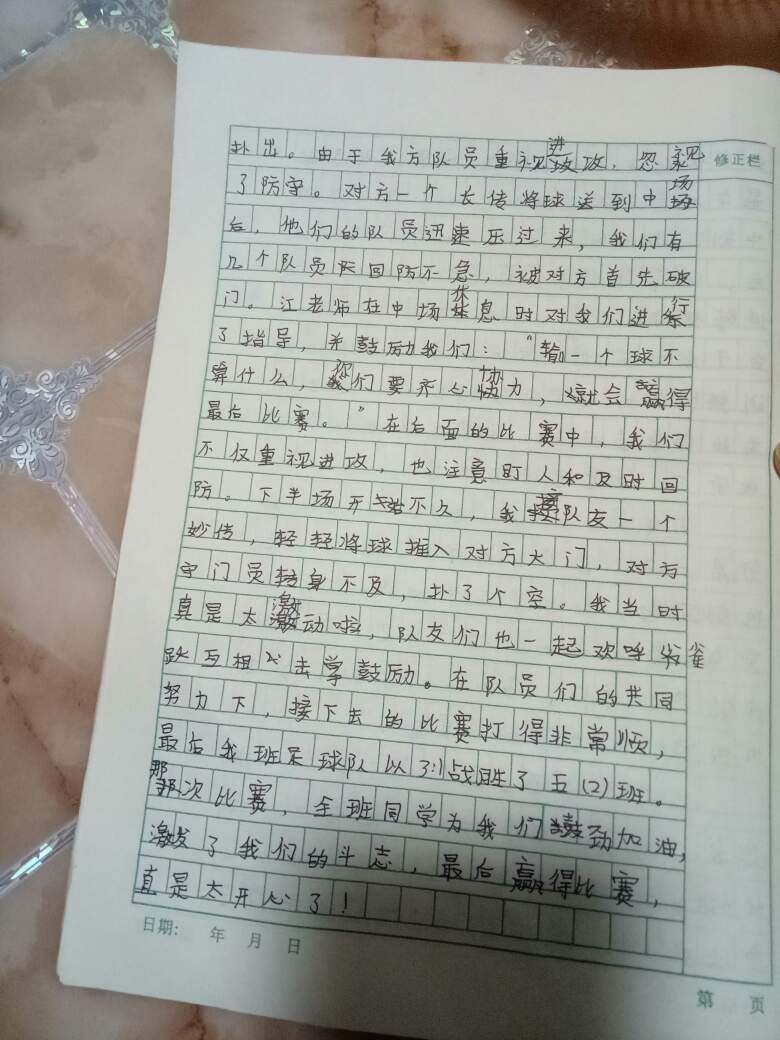 扑出。由于我方队员重视进攻，忽视 修正栏
了防守。对方一个长传将球送到中场
后，他们的队员迅速压过来，我们有
几个队员来回防不急，被对方首先破
门。江老师在中场休息时对我们进行
了指导，并鼓励我们：“输一个球不
算什么，你们要齐心协力，就会赢得
最后比赛。”在后面的比赛中，我们
不仅重视进攻，也注意盯人和及时回
防。下半场开始不久，我接队友一个
妙传，轻轻将球推入对方大门，对方
守门员转身不及，扑了个空。我当时
真是太激动啦，队友们也一起欢呼雀
跃互相击掌鼓励。在队员们的共同
努力下，接下去的比赛打得非常顺，
最后我班足球队以3:1战胜了五(2)班。
那次比赛，全班同学为我们鼓劲加油，
激发了我们的斗志，最后赢得比赛，
真是太开心了！
日期： 年 月 日
第 页